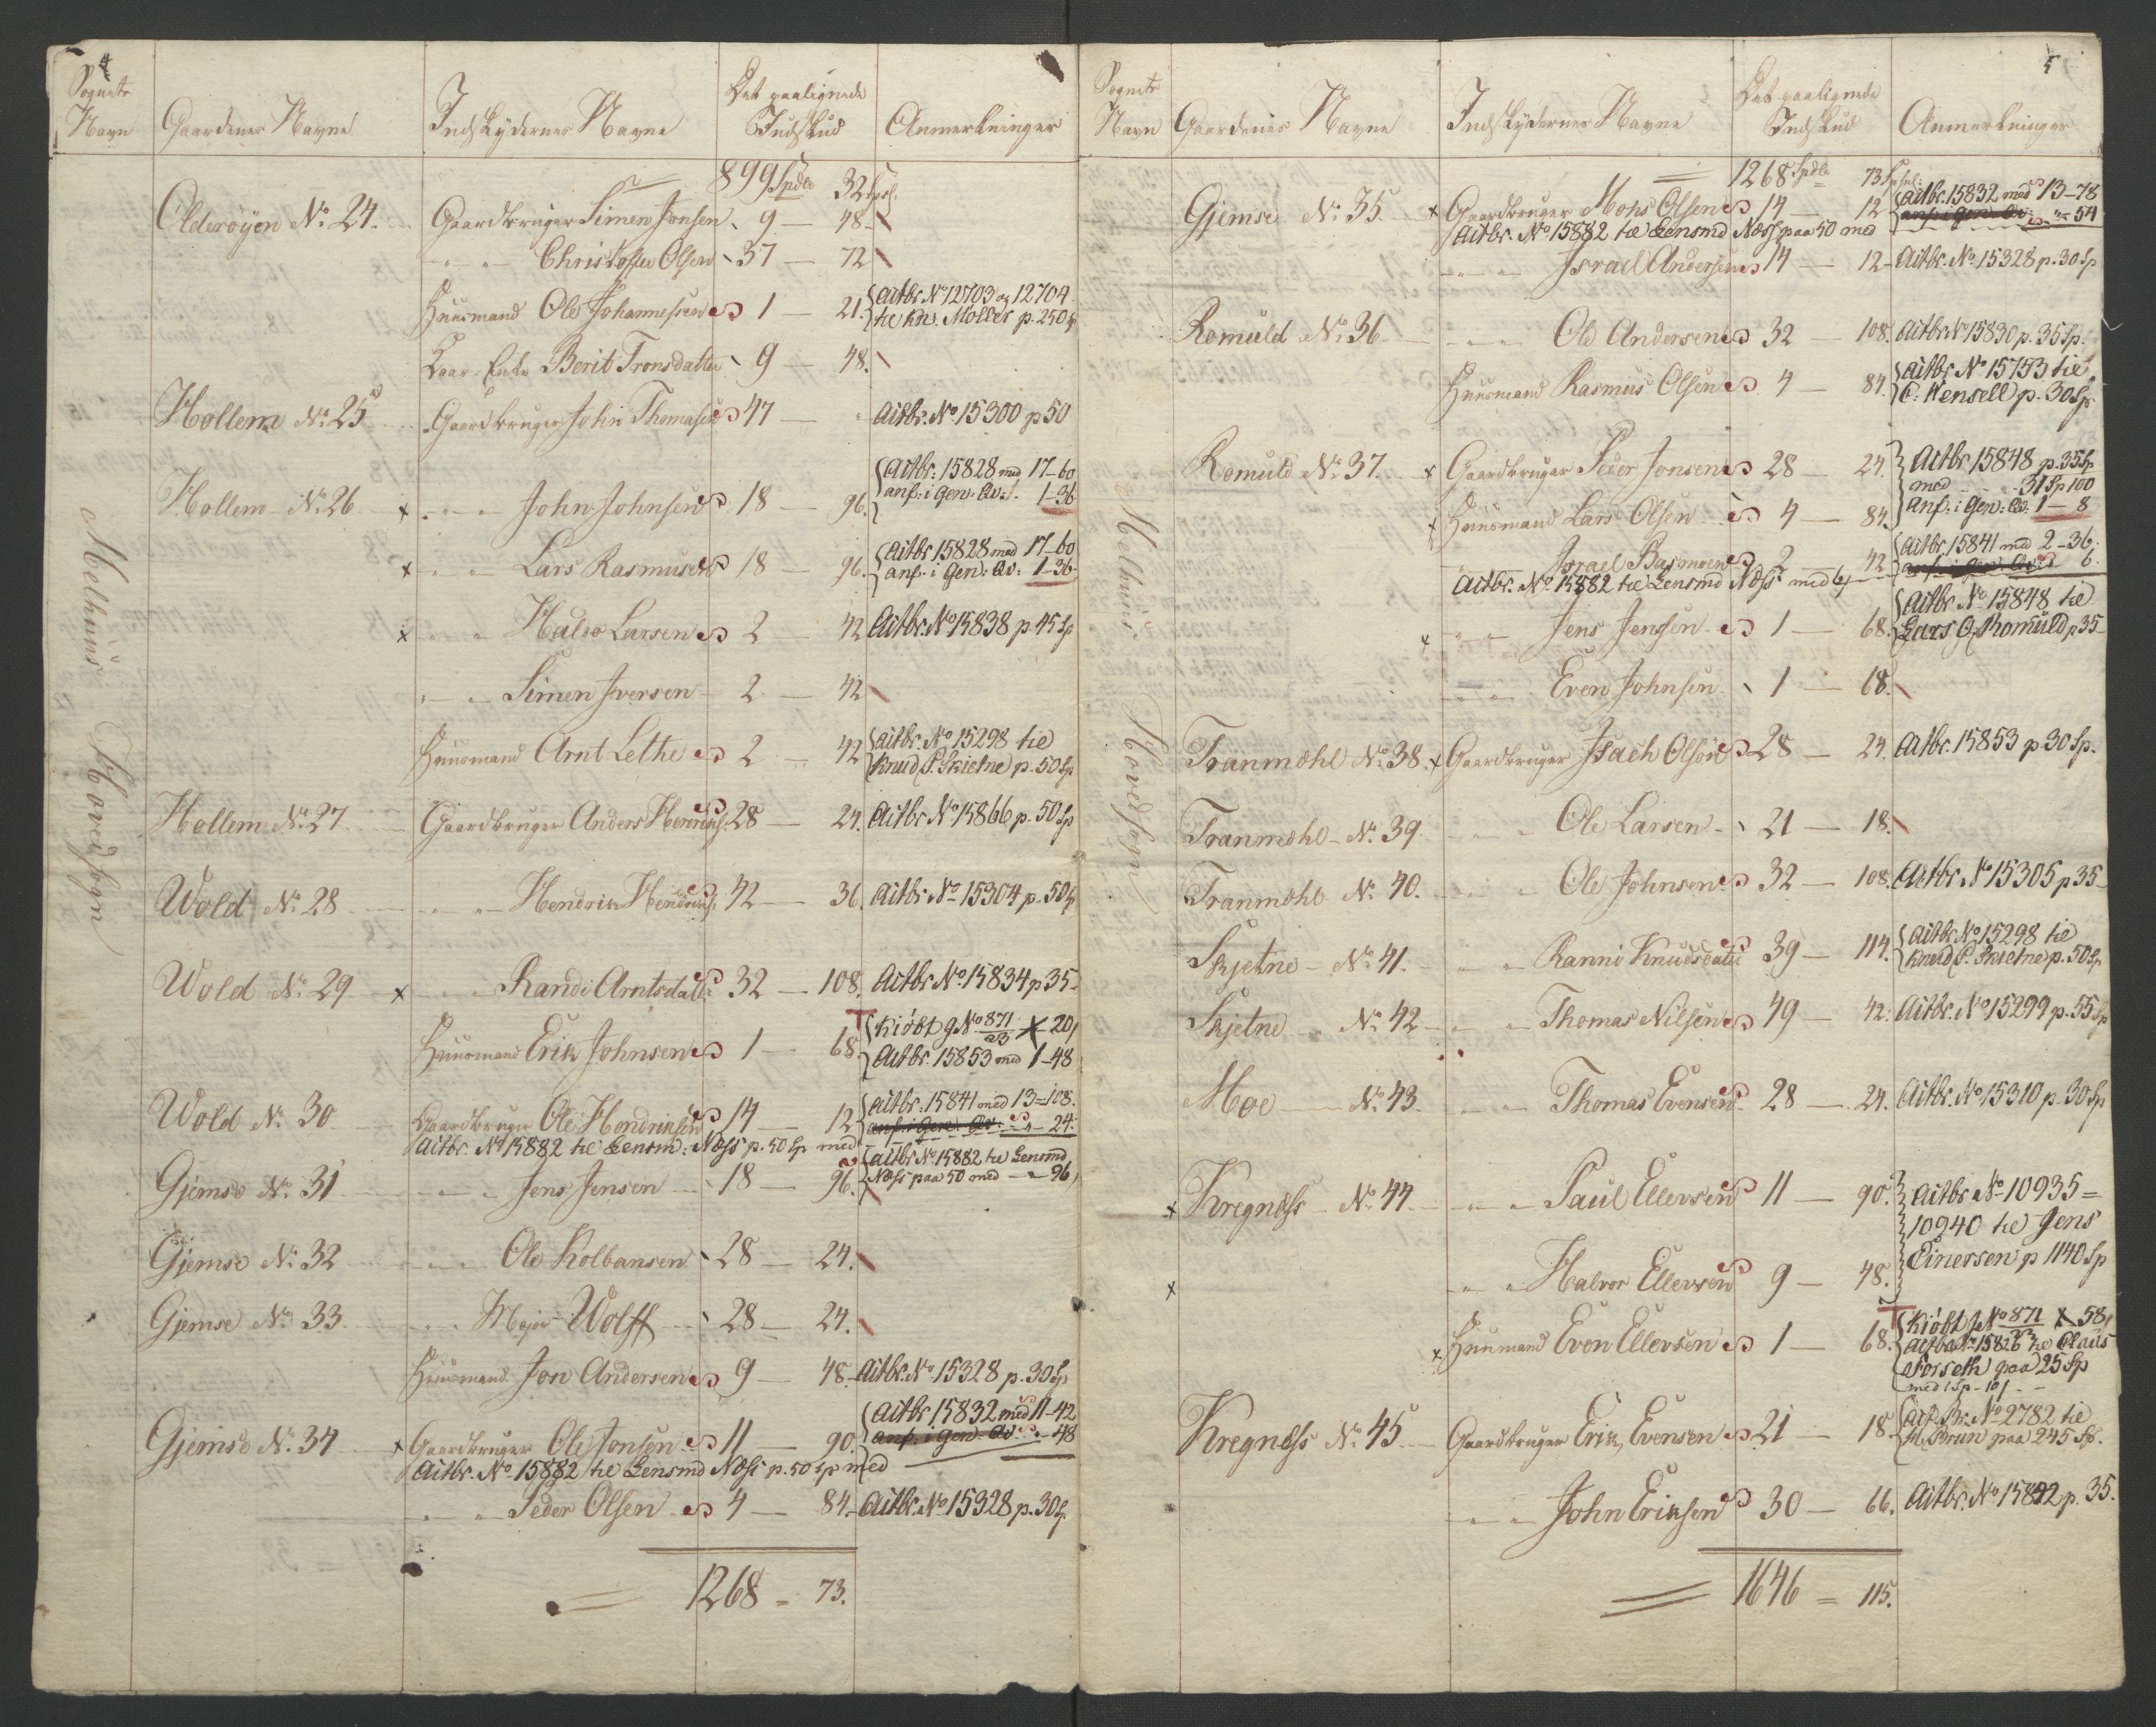 4
Sognets
Navn Gaardenes Navne Indskydernes Navne Det paalignede
Indskud Anmerkninger
899 Spdlr 32 sk.
Olderøyen No. 24. Gaardbruger Simen Jonsen 9 — 48.
" " Christoffer Olsen 37 — 72
Huusmand Ole Johannesen 1 — 21. Actbr. No 12703 og 12704
til Kn. Møller p. 250 Sp
Enke Berit Tronsdatter 9 — 48.
Hollem No. 25 Gaardbruger John Thomasen 47 — " Actbr. No. 15300 p 50
Hollem No. 26 x " " John Johnsen 18 — 96. Actbr: 15828 med 17–60
anf: i Gen: Qv: 1–36
x " " Lars Rasmusen 18 — 96. Actbr 15828 med 17–60
anf: i Gen: Qv: 1–36
x " " Halvo Larsen 2 — 42 Actbr. No 15838 p. 45 Sp
" " Simen Iversen 2 — 42
Huusmand Arnt Lethe 2 — 42 Actbr. No 15298 til
Knud P. Skietne p. 50 Sp
Hollem No. 27. Gaardbruger Anders Henrichs: 28 — 24. Actbr No 15866 p. 50 Sp
Wold No. 28 " " Hendrik Hendrichs: 42 — 36. Actbr No 15304 p. 50 Sp
Wold No. 29 x " " Randi Arntsdatt: 32 — 108. Actbr No. 15834 p 35
Huusmand Erik Johnsen 1 — 68. Kiøbt g No 871/23 x 20
Actbr. 15853 med 1–48
Wold No. 30 Gaardbruger Ole Hendriksen 14 — 12 Actbr: 15841 med 13=108.
anf: i Gen: Qv: " – 24.
Actbr. No 15882 til Lensm: Næss p. 50 Sp med
Gjemse No. 31 " " Jens Jensen 18 — 96. Actbr No 15882 til Lensmd
Næss paa 50 med – " – 96
Gjemse No. 32 " " Ole Kolbansen 28 — 24.
Gjemse No. 33. " " Major Wolff 28 — 24.
Huusmand Jon Andersen 9 — 48. Actbr. No 15328 p. 30 Sp
Gjemse No. 34 x Gaardbruger Ole Jonsen 11 — 90. Actbr 15832 med 11–42
anf. i Gen: Qv: " 48
Actbr. No 15882 til Lensmd Næss p. 50 Sp med
" " Peder Olsen 4 — 84. Actbr. No 15328 p. 30 Sp
1268 = 73.
Melhuus Hovedsogn
5
Sognets
Navn Gaardenes Navne Indskydernes Navne Det paalignede
Indskud Anmerkninger
1268 Spdlr 73 sk.
Gjemse No. 35. x Gaardbruger Mons Olsen 14 — 12 Actbr. 15832 med 13–78
anf: i Gen: Qv: " – 54
Actbr. No 15882 til Lensmd Næss paa 50 med
" " Israel Andersen 14 — 12 Actbr. No 15328 p. 30 Sp
Romuld No. 36 " " Ole Andersen 32 — 108. Actbr. No 15830 p. 35 Sp.
Huusmand Rasmus Olsen 4 — 84. Actbr No 15753 til
C: Hensell p. 30 Sp
Romuld No. 37. x Gaardbruger Peder Jonsen 28 — 24. Actbr 15848 p. 35 Sp
med 31 Sp 100
x Huusmand Lars Olsen 4 — 84. Anf. i Gen: Qv. 1 – 8
" Israel Basmoen 2 — 42 Actbr. 15841 med 2–36.
anf. i Gen: Qv: 6.
Actbr. No 15882 til Lensmd Næss med 6
x " " Jens Jensen 1 — 68. Actbr No. 15848 til
Lars O. Rhomuld p 35
" " Even Johnsen 1 — 68.
Tranmæhl No. 38. x Gaardbruger Isach Olsen 28 — 24. Actbr. 15853 p 30 Sp.
Tranmæhl No. 39 " " Ole Larsen 21 — 18.
Tranmæhl No. 40. " " Ole Johnsen 32 — 108. Actbr. No 15305 p 35
Skjetne No. 41. " " Ranni Knudsdatter 39 — 114. Actbr. No 15298 til
Knud P. Skietne p. 50 Sp
Skjetne No. 42 " " Thomas Nilsen 49 — 42. Actbr. No 15299 p. 55 Sp
Moe No. 43. " " Thomas Evensen 28 — 24. Actbr. No 15310 p. 30 Sp
x Kregness No. 44. " " Paul Ellevsen 11 — 90. Actbr No 10935 =
10940 til Jens
Einersen p 1140 Sp
x " " Halvor Ellevsen 9 — 48.
x Huusmand Even Ellevsen 1 — 68. Kiøbt g No 871 x 58
Actbr No 15826 til Claus
Forseth paa 25 Sp
med 1 Sp – 10
Kregness No. 45. Gaardbruger Erik Evensen 21 — 18. Act. Br. No 2782 til
H. Brun paa 245 Sp.
" " John Eriksen 30 — 66. Actbr. No 15822 p. 35.
1646 = 115.
Melhuus Hovedsogn